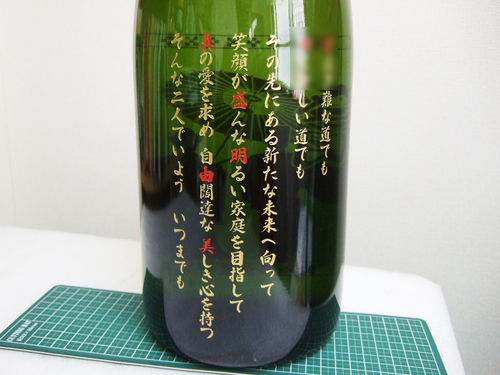 難な道でも
しい道でも
その先にある新たな未来へ向って
笑顔が盛んな明るい家庭を目指して
真の愛を求め 自由闊達な 美しき心を持つ
そんな二人でいよう いつまでも